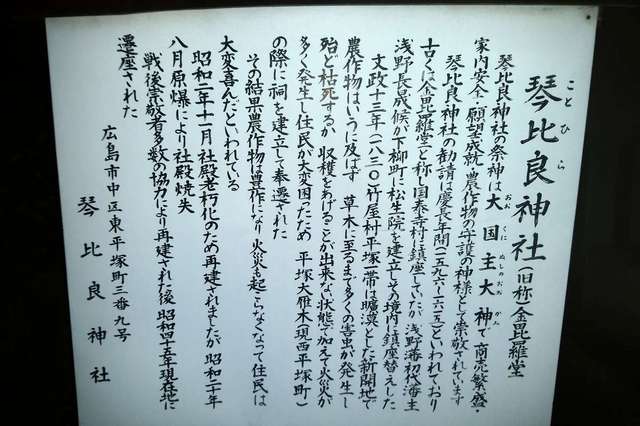 ことひら
琴比良神社(旧称)金毘羅堂
琴比良神社の祭神は大国主大神で商売繁盛・
おお くに ぬしのおお かみ
家内安全・願望成就・農作物の守護の神様として崇敬されています
琴比良神社の勧請は慶長年間(一五九六~一六一五)といわれており
古くは金毘羅堂と称し国泰寺村に鎮座していたが浅野藩初代藩主
浅野長晟候が下柳町に松生院を建立しその境内に鎮座替えした
文政十三年(一八三〇)竹屋村平塚一帯は曠漠とした新開地で
農作物はいうに及ばず 草木に至るまで多くの害虫が発生し
殆と枯死するか 収穫をあげることが出来な状態で加えて火災が
多く発生し住民が大変困ったため 平塚大雁木(現西平塚町)
の際に祠を建立して奉遷された
その結果農作物は豊作になり火災も起らなくなって住民は
大変喜んだといわれている
昭和二年十一月社殿老朽化のため再建されましたが昭和二十年
八月原爆により社殿焼失
戦後崇敬者多数の協力により再建された後昭和四十五年現在地に
遷座された
広島市中区東平塚町三番九号
琴比良神社